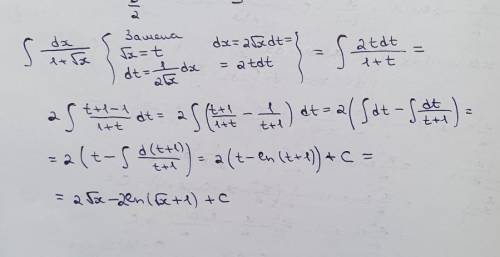 2
∫ dx/(1+√x) { Замена √x = t dt = 1/(2√x) dx dx = 2√x dt = = 2t dt } = ∫ 2t dt/(1+t) =
2 ∫ (t+1-1)/(1+t) dt = 2 ∫ ( (t+1)/(1+t) - 1/(t+1) ) dt = 2 ( ∫ dt - ∫ dt/(t+1) ) =
= 2 ( t - ∫ d(t+1)/(t+1) ) = 2 (t - ln(t+1)) + C =
= 2√x - 2ln(√x+1) + C